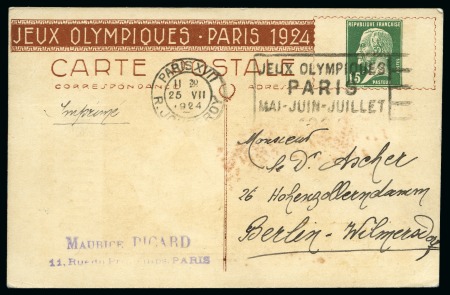 JEUX OLYMPIQUES · PARIS 1924
CARTE POSTALE
CORRESPONDANCE ADRESSE
15
PASTEUR
PARIS XVII
25 VII
1924
JEUX OLYMPIQUES
PARIS
MAI-JUIN-JUILLET
Imprimé
Monsieur
le Dr. Ascher
26 Hohenzollerndamm
Berlin-Wilmersdorf
MAURICE PICARD
11, PARIS